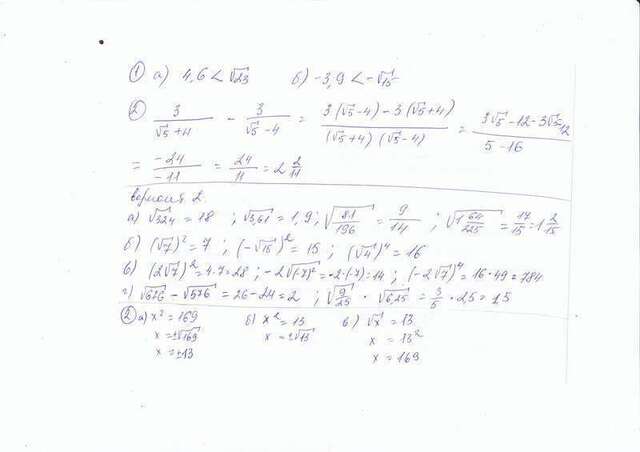 ① а) 4,6 < √23 б) -3,9 < -√15
② 3/(√5+4) - 3/(√5-4) = (3(√5-4)-3(√5+4))/((√5+4)(√5-4)) = (3√5-12-3√5-12)/(5-16)
= -24/-11 = 24/11 = 2 2/11
вариант 2.
а) √324 = 18 ; √3,61 = 1,9 ; √(81/196) = 9/14 ; √(1 64/225) = 17/15 = 1 2/15
б) (√7)² = 7 ; (-√15)² = 15 ; (√4)⁴ = 16
в) (2√7)² = 4·7 = 28 ; -2√(-7)² = -2·(-7) = 14 ; (-2√7)⁴ = 16·49 = 784
г) √676 - √576 = 26 - 24 = 2 ; √(9/25) · √625 = 3/5 · 25 = 15
② а) x² = 169 б) x² = 13 в) √x = 13
x = ±√169 x = ±√13 x = 13²
x = ±13 x = 169